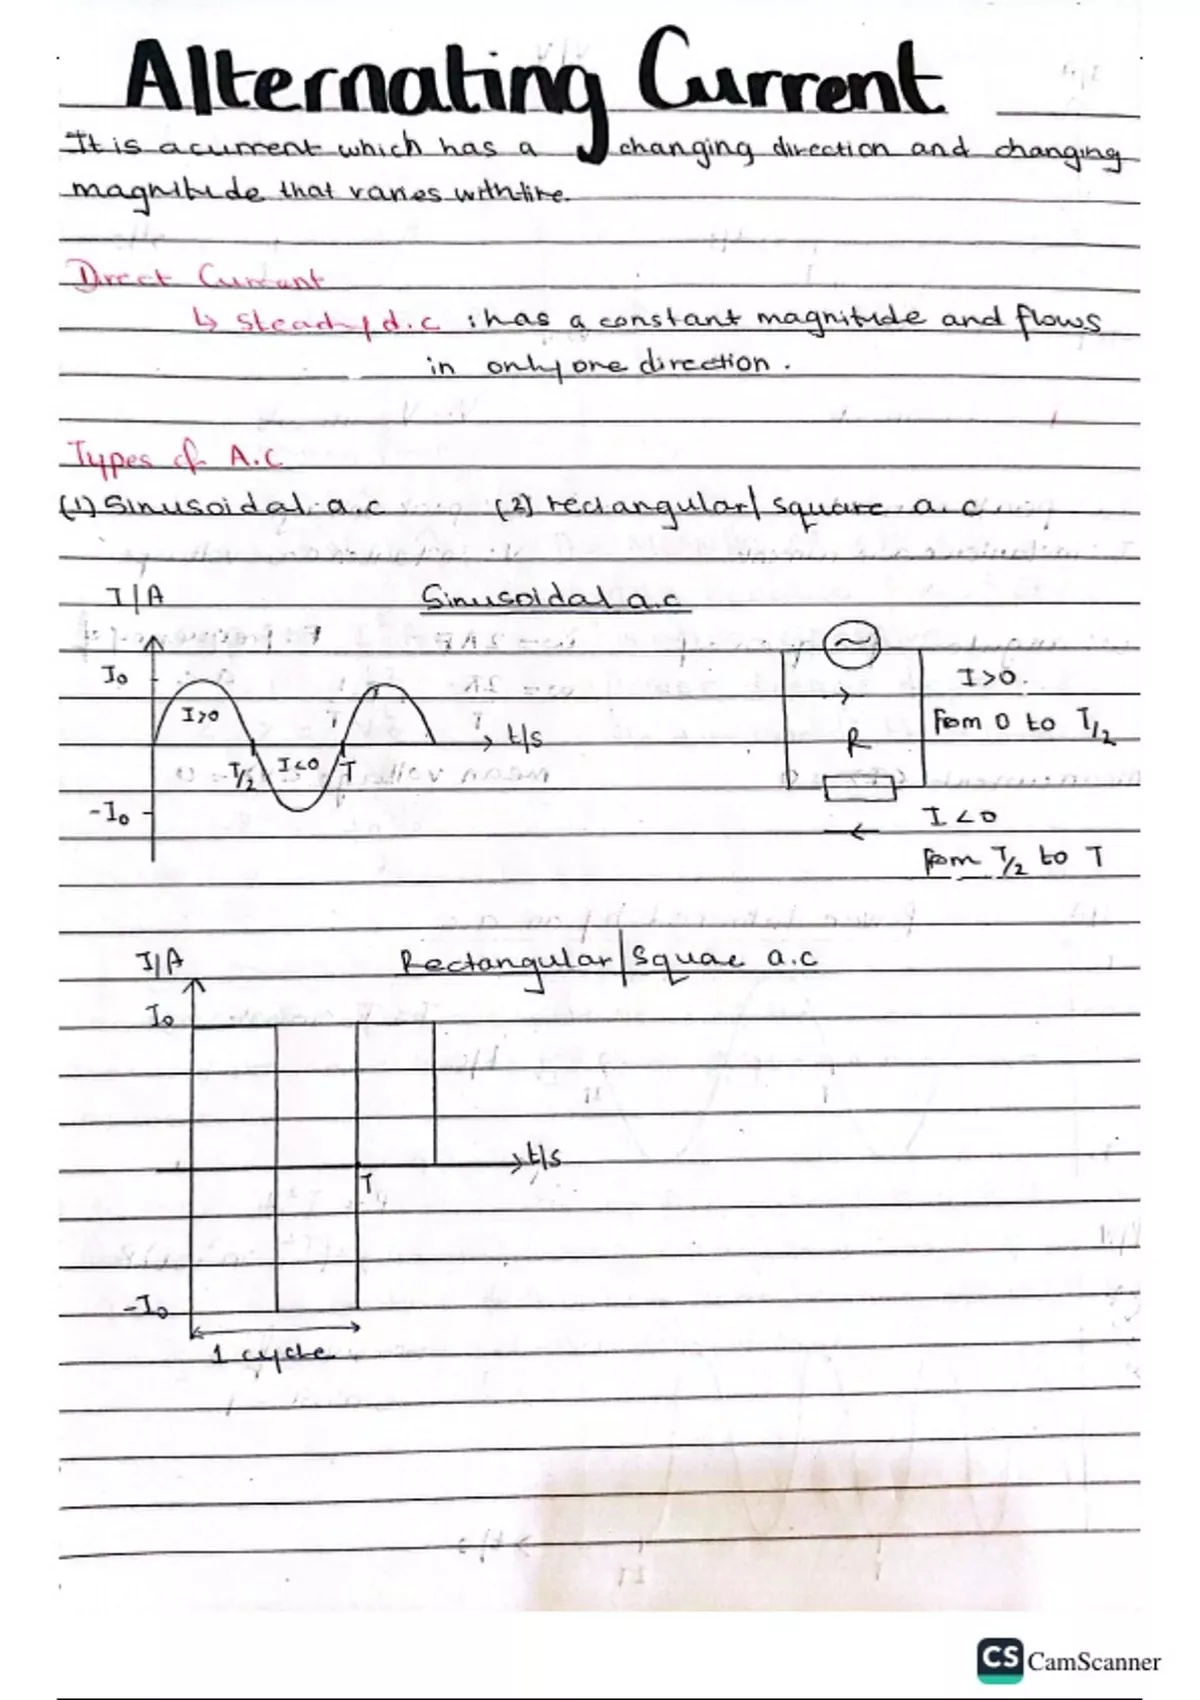 Alternating Current
It is a current which has a changing direction and changing
magnitude that varies with time.
Direct Current
↳ steady d.c : has a constant magnitude and flows
in only one direction.
Types of A.C
(1) Sinusoidal a.c (2) rectangular/square a.c
I/A Sinusoidal a.c
~
I₀ I>0.
I>0 from 0 to T/2
t/s R
T/2 I<0 T
-I₀ I<0
from T/2 to T
I/A Rectangular/Squae a.c
I₀
t/s
T
-I₀
1 cycle
CS CamScanner